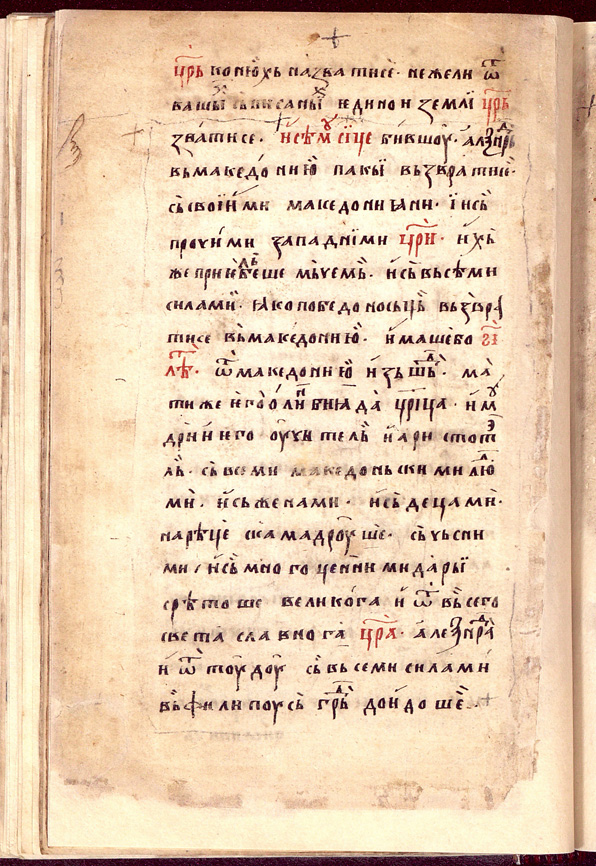 цр҃ь конюхь назватисе· нежели ѿ
вашы сьписанїи· ѥдинои землї цр҃ь
зватисе· И семꙋ сїце бившоу· алезⷩ҇дрь
вьмакедонию пакы вьзвратисе·
сьсвоиими македониꙗни· ї ись
прочими западнїми цр҃и· ихь
силами· ꙗко победоносьць вьзвра
тисе вьмакедонию· имаше бо г҃ї
лѣⷮ· ѿмакедонию изьшьⷣ· ма
тиже ѥго олиⷨбиꙗда цр҃ица· и мꙋ
дри ѥго оучитель и аристотⷷ
ль· сьвсеми македоньскими люⷣ
ми· и сьженами· и сь децами·
нарѣце скамадроуше· сьчьсти
ми и сь многоценними дары
срѣтоше великога и ѿ вьсего
света славнога цр҃а· алеѯⷩ҇дра
и ѿтоудоу сьвьсеми силами
вьфилипоусь граⷣ доидоше·